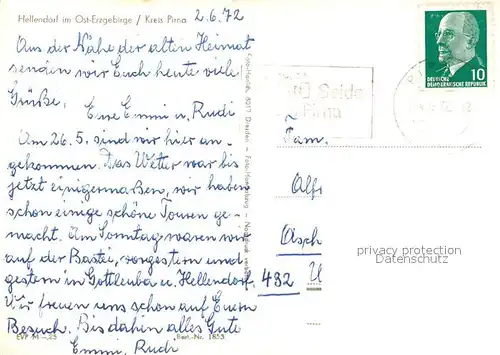 Hellendorf im Ost-Erzgebirge / Kreis Pirna
2.6.72
Aus der Nähe der alten Heimat
senden wir Euch heute viele
Grüße. Eure Emmi u. Rudi
Am 26.5. sind wir hier an-
gekommen. Das Wetter war bis
jetzt einigermaßen, wir haben
schon einige schöne Touren ge-
macht. Am Sonntag waren wir
auf der Bastei, vorgestern und
gestern in Gottleuba u. Hellendorf.
Wir freuen uns schon auf Euern
Besuch. Bis dahin alles Gute
Emmi, Rudi
EVP M -,25
Best.-Nr. 1853
10
DEUTSCHE
DEMOKRATISCHE REPUBLIK
Seide
Pirna
Fam.
Alfr
Asch
432
privacy protection
Datenschutz